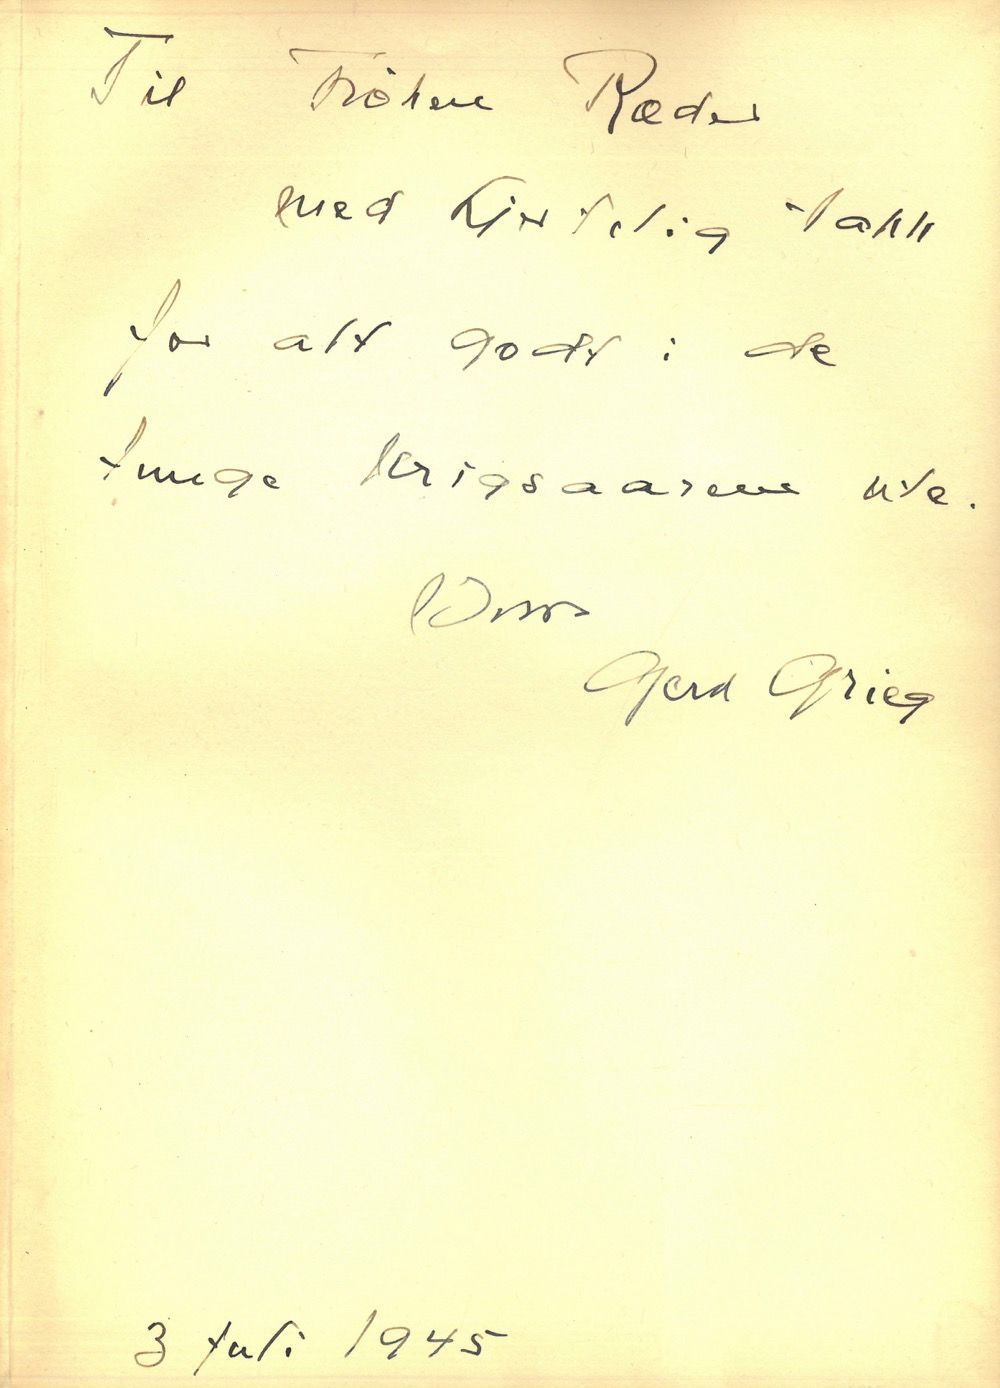 Til Fröken Ræder
med hjertelig takk
for alt godt i de
tunge krigsaarene ute.
Deres
Gerd Grieg
3 juli 1945